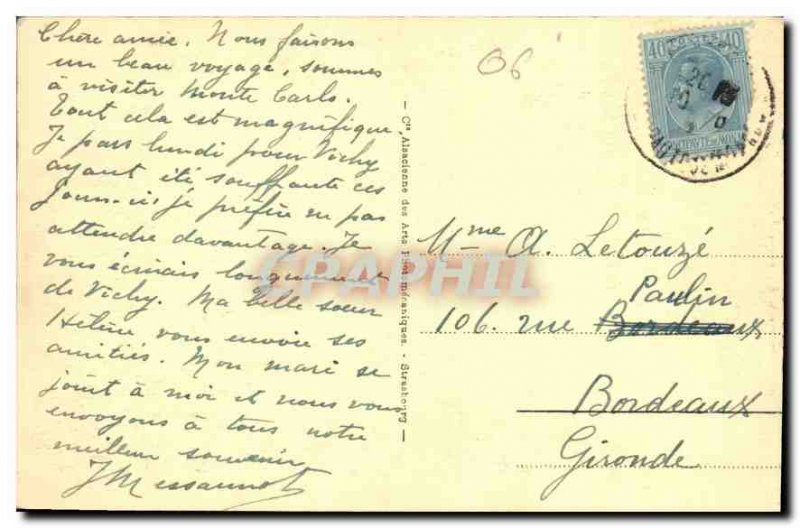 Chère amie. Nous faisons
un beau voyage, sommes
à visiter Monte Carlo.
Tout cela est magnifique
Je pars lundi pour Vichy
ayant été souffrante ces
jours-ci, je préfère ne pas
attendre davantage. Je
vous écrirais longuement
de Vichy. Ma belle sœur
Hélène vous envoie ses
amitiés. Mon mari se
joint à moi et nous vous
envoyons à tous notre
meilleur souvenir
06
Cie Alsacienne des Arts Photomécaniques. - Strasbourg
40 40
Mme A. Letouzé
Paulin
106. rue Bordeaux
Bordeaux
Gironde
CPAPHIL